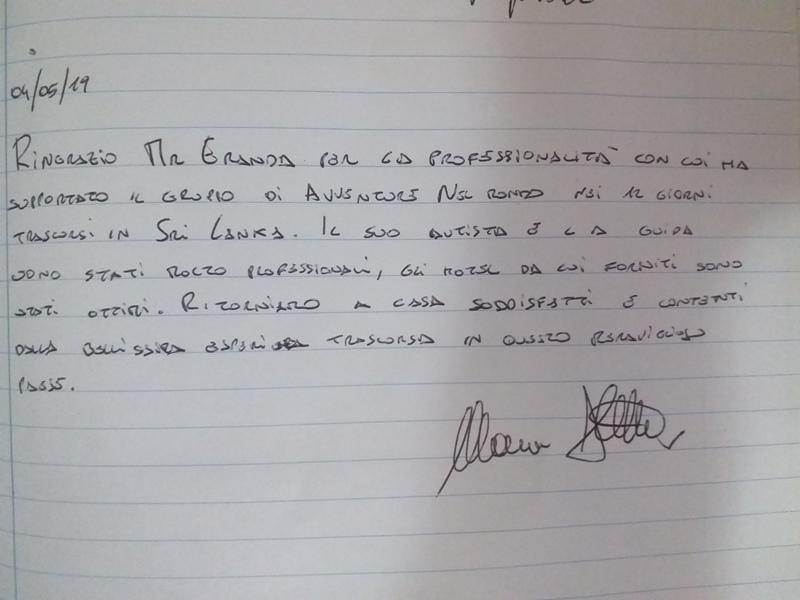 04/05/19
RINGRAZIO MR ERANDA PER LA PROFESSIONALITÀ CON CUI HA
SUPPORTATO IL GRUPPO DI AVVENTURE NEL MONDO NEI 12 GIORNI
TRASCORSI IN SRI LANKA. IL SUO AUTISTA E LA GUIDA
SONO STATI MOLTO PROFESSIONALI, GLI HOTEL DA LUI FORNITI SONO
STATI OTTIMI. RITORNIAMO A CASA SODDISFATTI E CONTENTI
DALLA BELLISSIMA ESPERIENZA TRASCORSA IN QUESTO MERAVIGLIOSO
PAESE.